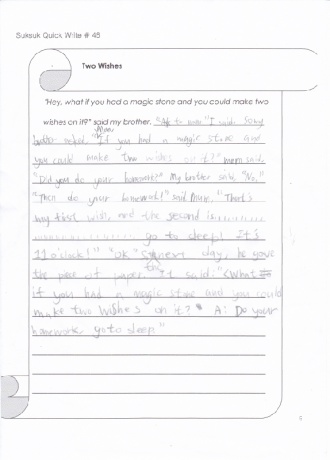 Suksuk Quick Write # 45
Two Wishes
"Hey, what if you had a magic stone and you could make two
wishes on it?" said my brother. "Ask to mom" I said. So my
brother asked, "If you had a magic stone and
Mom
you could make two wishes on it?" mom said,
"Did you do your homework?" My brother said, "No."
"Then do your homework!" said Mum. "That's
my first wish, and the second is...........
................ go to sleep! It's
11 o'clock!" "OK" day, he gave
the piece of paper. It said: "What
if you had a magic stone and you could
make two wishes on it? A: Do your
homework, go to sleep"